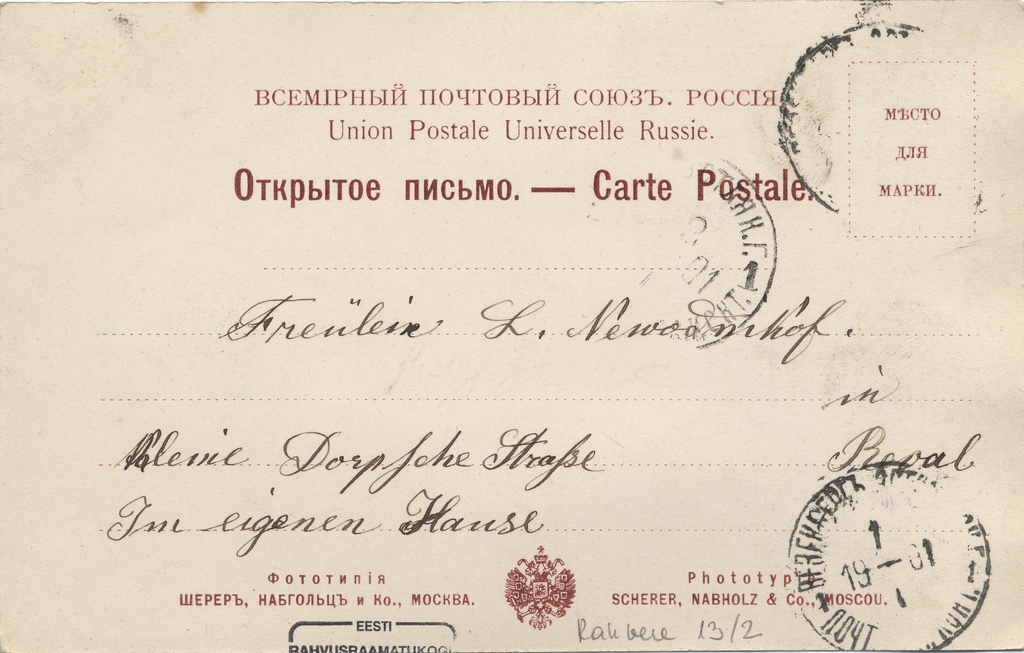 ВСЕМІРНЫЙ ПОЧТОВЫЙ СОЮЗЪ. РОССІЯ
Union Postale Universelle Russie.
Открытое письмо. — Carte Postale.
МѢСТО
ДЛЯ
МАРКИ.
Freülein L.
in
Kleine Dorpsche Straße Reval
Im eigenen Hause
Фототипія
ШЕРЕРЪ, НАБГОЛЬЦЪ и Ко., МОСКВА.
Phototypie
SCHERER, NABHOLZ & Co., MOSCOU.
1
19 — 01
1
ПОЧТ
EESTI
RAHVUSRAAMATUKOGU
Rakvere 13/2